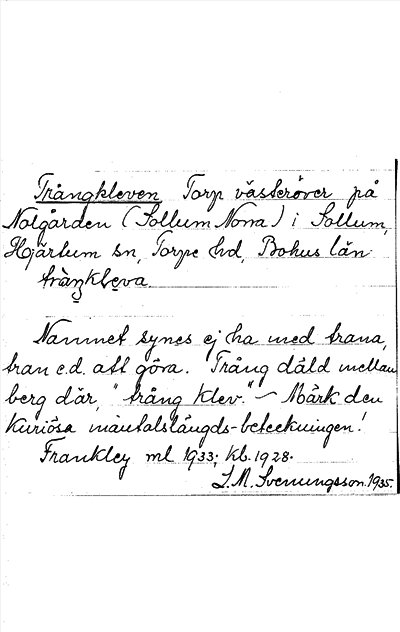 Trångkleven Torp västeröver på
Nolgården (Sollum Norra) i Sollum,
Hjärtum sn, Torpe hd, Bohus län
tràŋkḷeva
Namnet synes ej ha med trana,
tran e.d. att göra. Trång däld mellan
berg där, "trång klev." — Märk den
kuriösa mantalslängds-beteckningen!
Frankley ml 1933; kb. 1928.
S.M. Svenungsson. 1935.